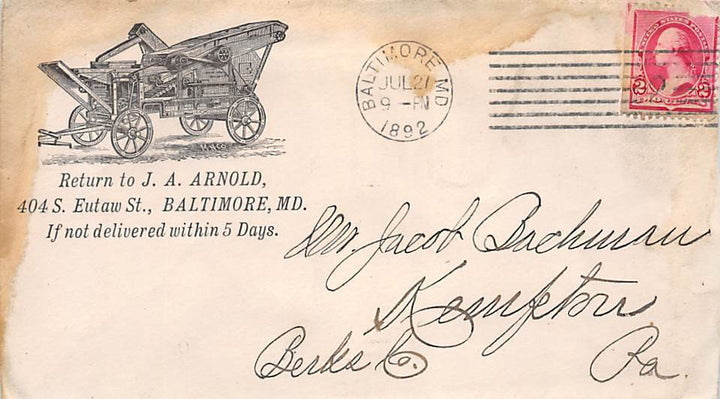 Return to J. A. ARNOLD,
404 S. Eutaw St., BALTIMORE, MD.
If not delivered within 5 Days.
BALTIMORE MD
JUL 21
9 - PM
1892
2 2
Mr. Jacob Bachman
Kempton
Berks Co. Pa.